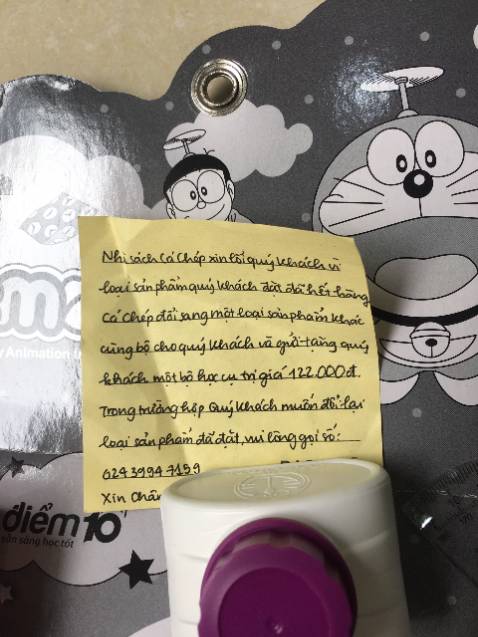 Nhà sách Cá Chép xin lỗi quý khách vì
loại sản phẩm quý khách đặt đã hết hàng
Cá Chép đổi sang một loại sản phẩm khác
cùng bộ cho quý khách và gửi tặng quý
khách một bộ học cụ trị giá 122.000đ.
Trong trường hợp Quý khách muốn đổi lại
loại sản phẩm đã đặt, vui lòng gọi số:
024 39947159
Xin Chân
y Animation
điểm 10
sẵn sàng học tốt